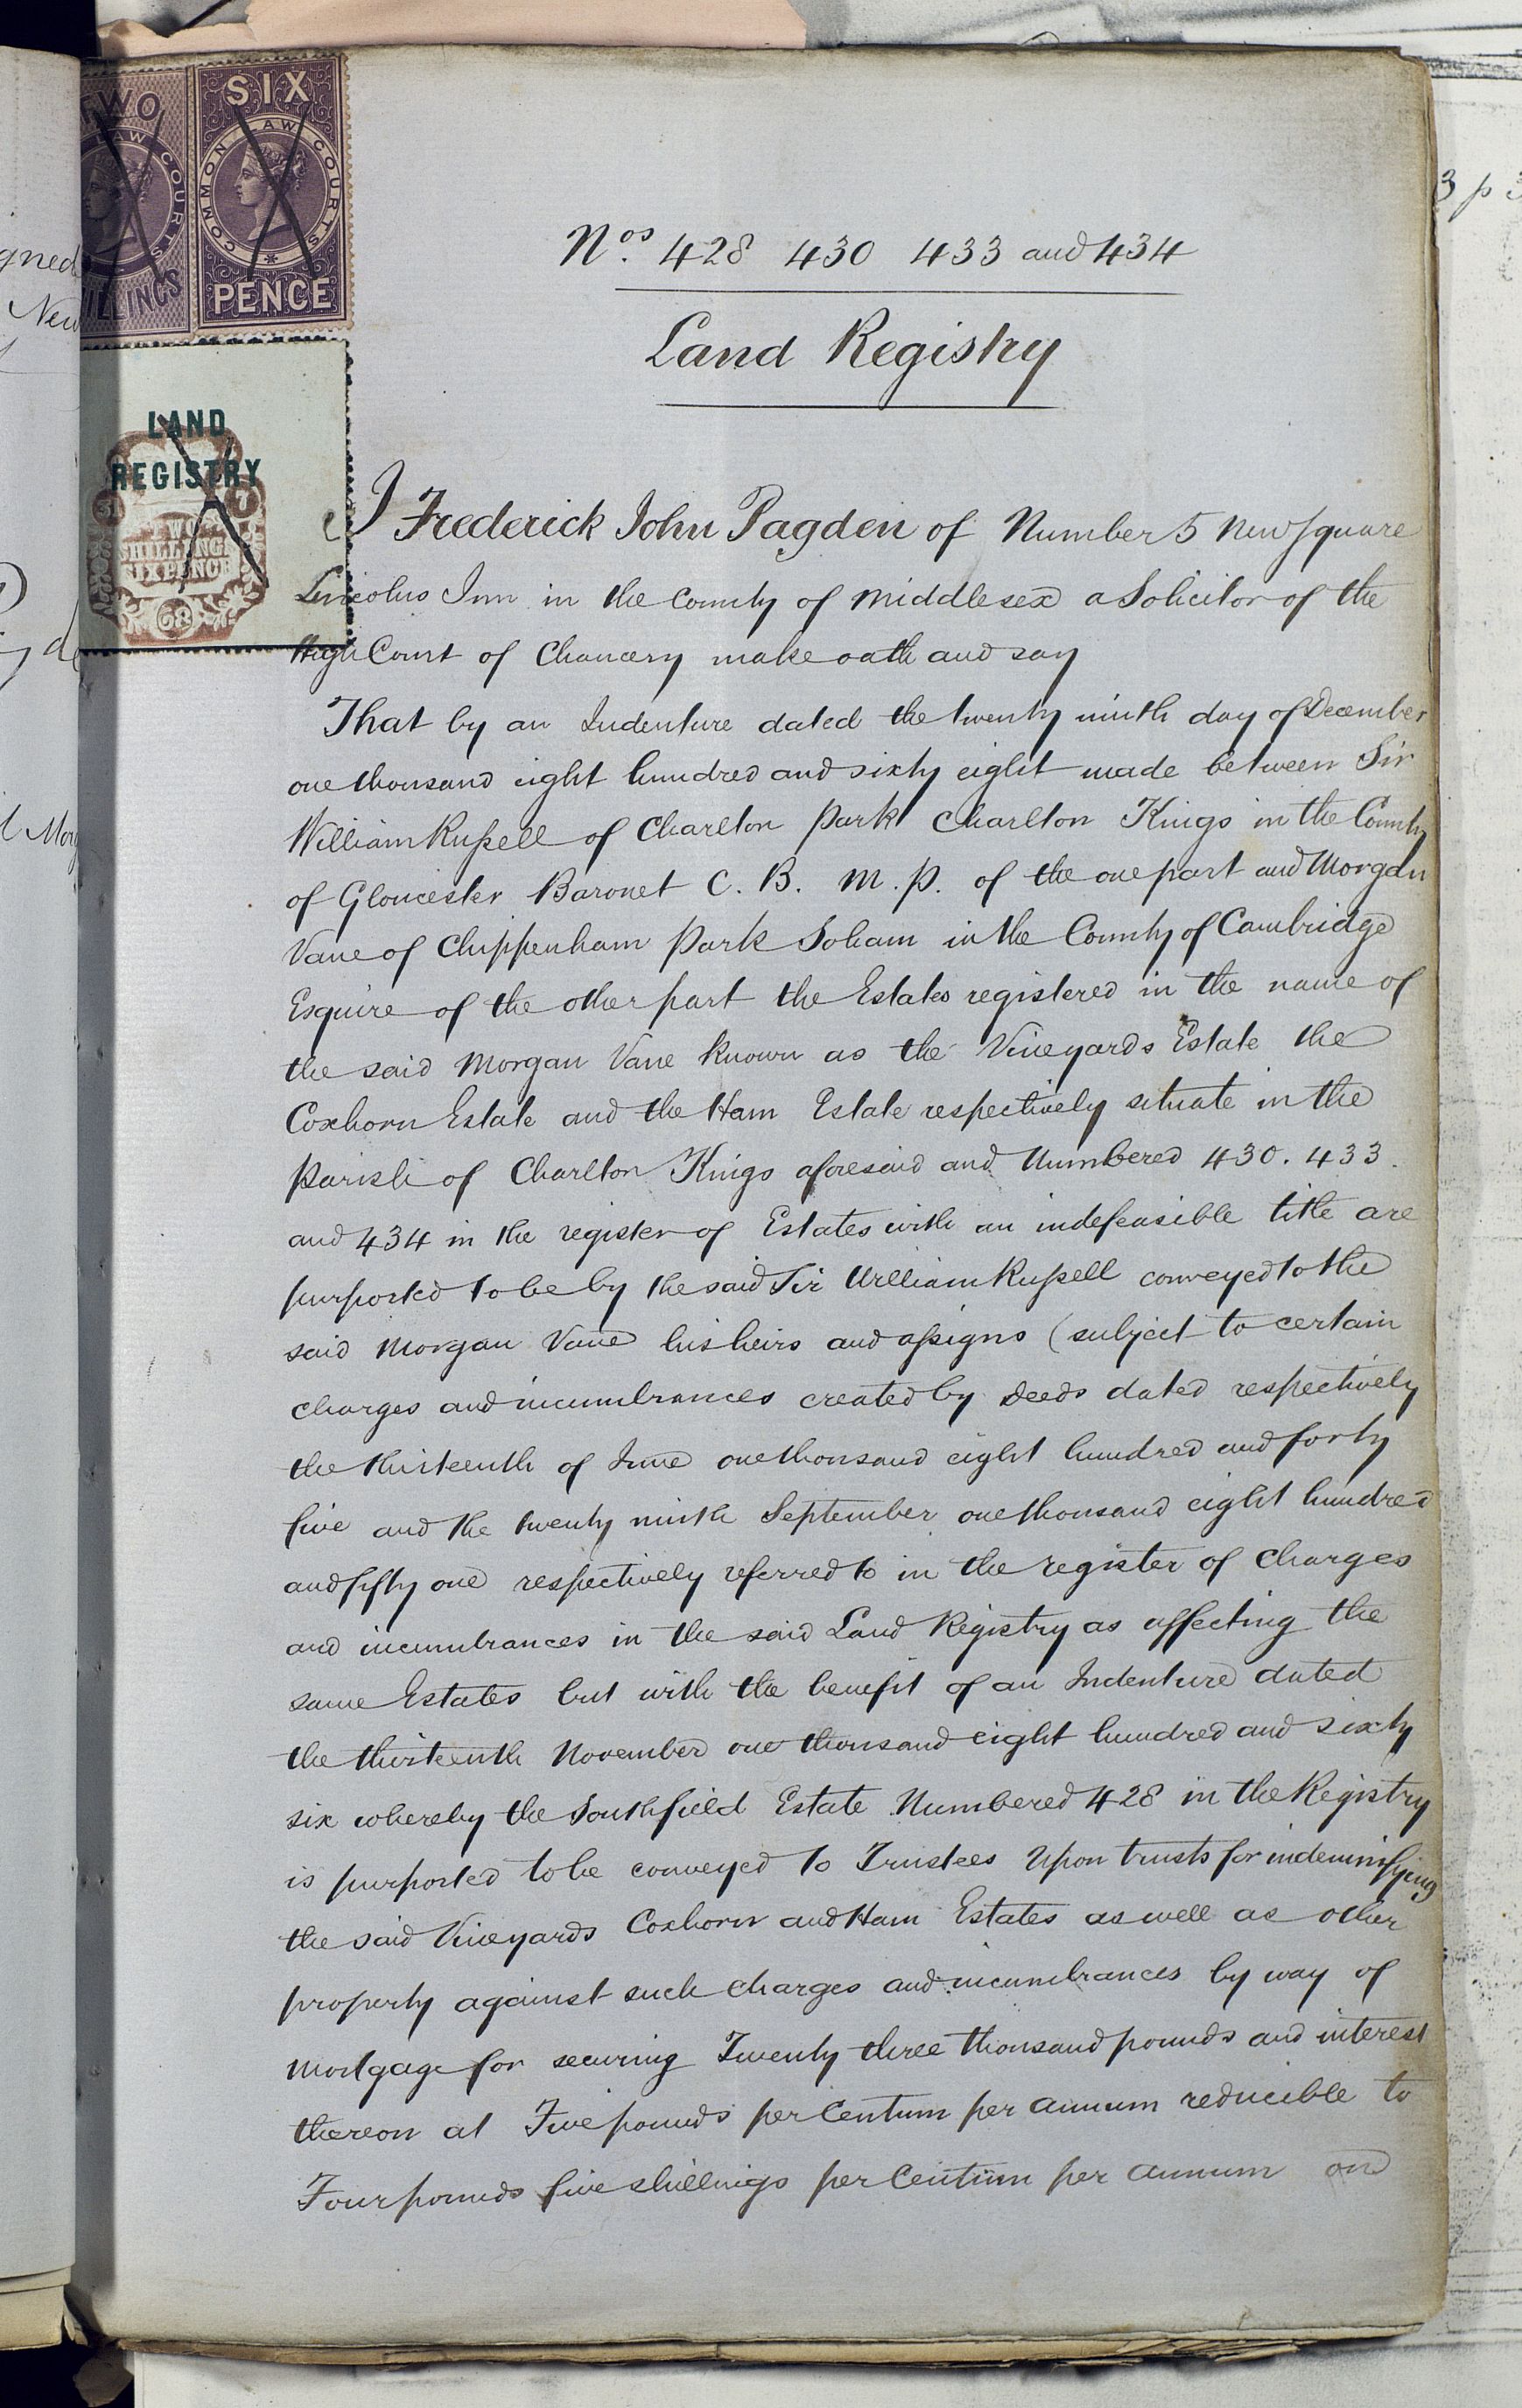 TWO
LAW COURTS
ILLINGS
SIX
COMMON LAW COURTS
PENCE
LAND
REGISTRY
SHILLINGS
SIXPENCE
68
gned
New
3 p 3
Nos. 428 430 433 and 434
Land Registry
I Frederick John Pagden of Number 5 New Square
Lincolns Inn in the County of Middlesex a Solicitor of the
High Court of Chancery make oath and say
That by an Indenture dated the twenty ninth day of December
one thousand eight hundred and sixty eight made between Sir
William Russell of Charlton Park Charlton Kings in the County
of Gloucester Baronet C. B. M. P. of the one part and Morgan
Vane of Chippenham Park Soham in the County of Cambridge
Esquire of the other part the Estates registered in the name of
the said Morgan Vane known as the Vineyards Estate the
Coxhorn Estate and the Ham Estate respectively situate in the
Parish of Charlton Kings aforesaid and Numbered 430. 433.
and 434 in the register of Estates with an indefeasible title are
purported to be by the said Sir William Russell conveyed to the
said Morgan Vane his heirs and assigns (subject to certain
charges and incumbrances created by Deeds dated respectively
the thirteenth of June one thousand eight hundred and forty
five and the twenty ninth September one thousand eight hundred
and fifty one respectively referred to in the register of charges
and incumbrances in the said Land Registry as affecting the
same Estates but with the benefit of an Indenture dated
the thirteenth November one thousand eight hundred and sixty
six whereby the Southfield Estate Numbered 428 in the Registry
is purported to be conveyed to Trustees Upon trusts for indemnifying
the said Vineyards Coxhorn and Ham Estates as well as other
property against such charges and incumbrances by way of
Mortgage for securing Twenty three thousand pounds and interest
thereon at Five pounds per Centum per annum reducible to
Four pounds five shillings per Centum per annum on